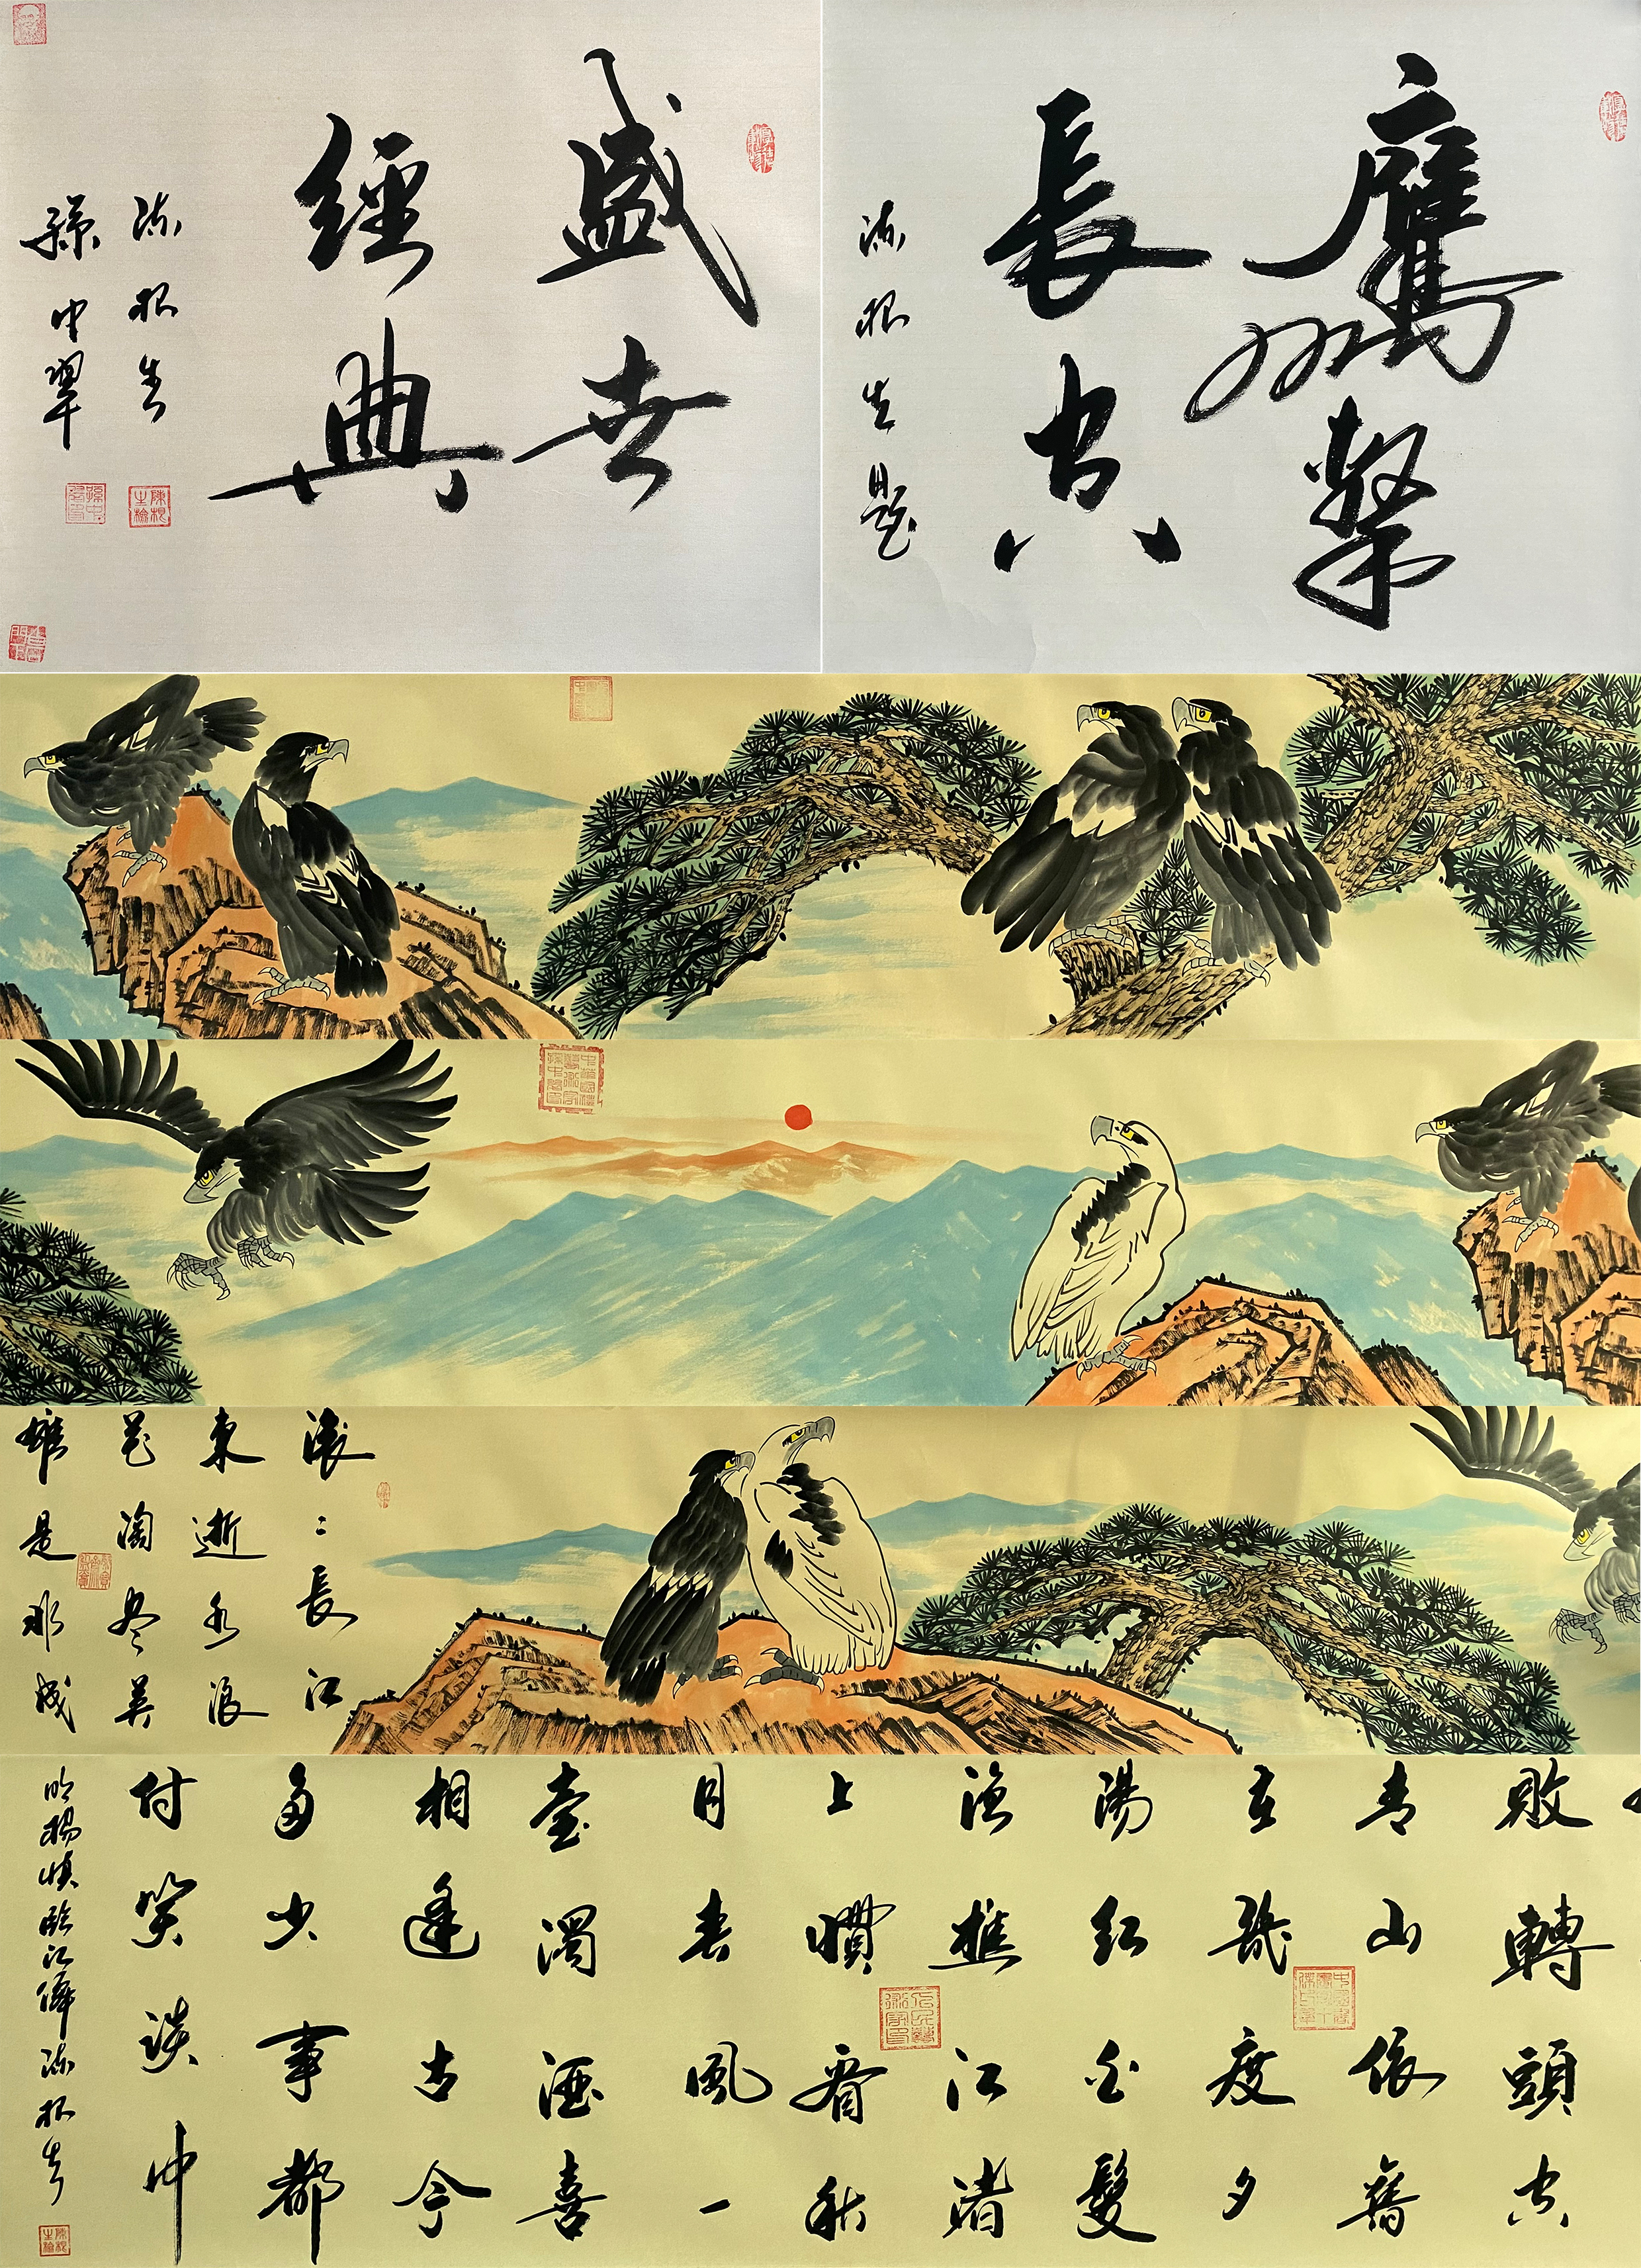 盛世
經典
陈根生
孫中翠
鷹擊
長空
陈根生題
滚〻長江
東逝水浪
花淘尽英
雄是非成
敗轉頭空
青山依舊
在幾度夕
陽红白髮
漁樵江渚
上慣看秋
月春風一
壺濁酒喜
相逢古今
多少事都
付笑談中
明楊慎臨江僊陈根生